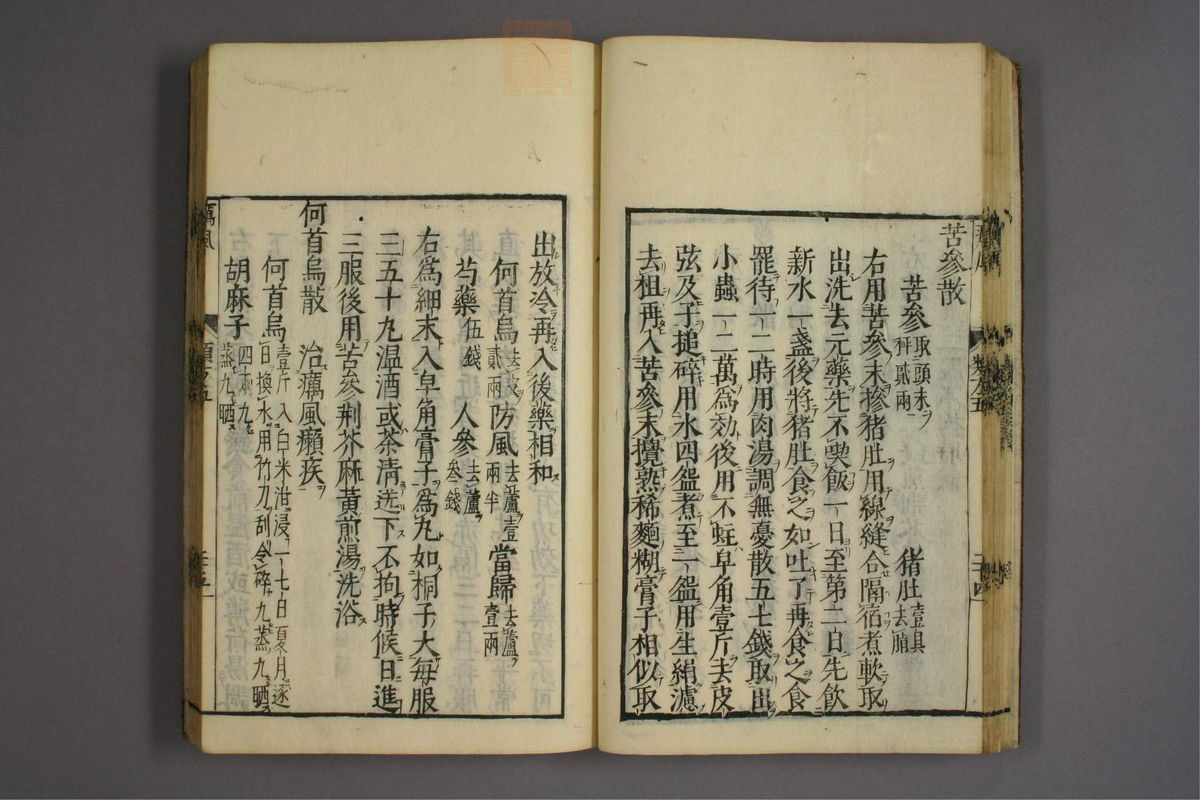 苦參散
苦參取頭末秤貳兩 猪肚壹具去脂
右用苦參末摻猪肚用線縫合隔宿煮軟取
出洗去元藥先不喫飯一日至第二日先飲
新水一盞後將猪肚食之如吐了再食之食
罷待一二時用肉湯調無憂散五七錢取出
小蟲一二萬爲効後用不蛀皁角壹斤去皮
弦及子搥碎用水四盌煮至一盌用生絹濾
去柤再入苦參末攪熟稀麵糊膏子相似取
出放冷再入後藥相和
何首烏貳兩去皮 防風去蘆壹兩半 當歸去蘆壹兩
芍藥伍錢 人參去蘆叁錢
右爲細末入皁角膏子爲丸如桐子大每服
三五十丸温酒或茶清送下不拘時候日進
三服後用苦參荆芥麻黄煎湯洗浴
何首烏散 治癘風癩疾
何首烏壹斤入白米泔浸一七日夏月逐日換水用竹刀刮令碎九蒸九晒
胡麻子四兩九蒸九晒